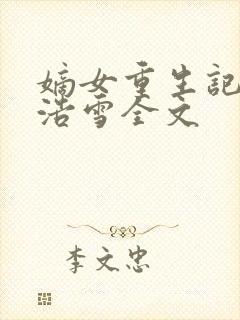 嫡女重生記
浩雪全文
李文忠